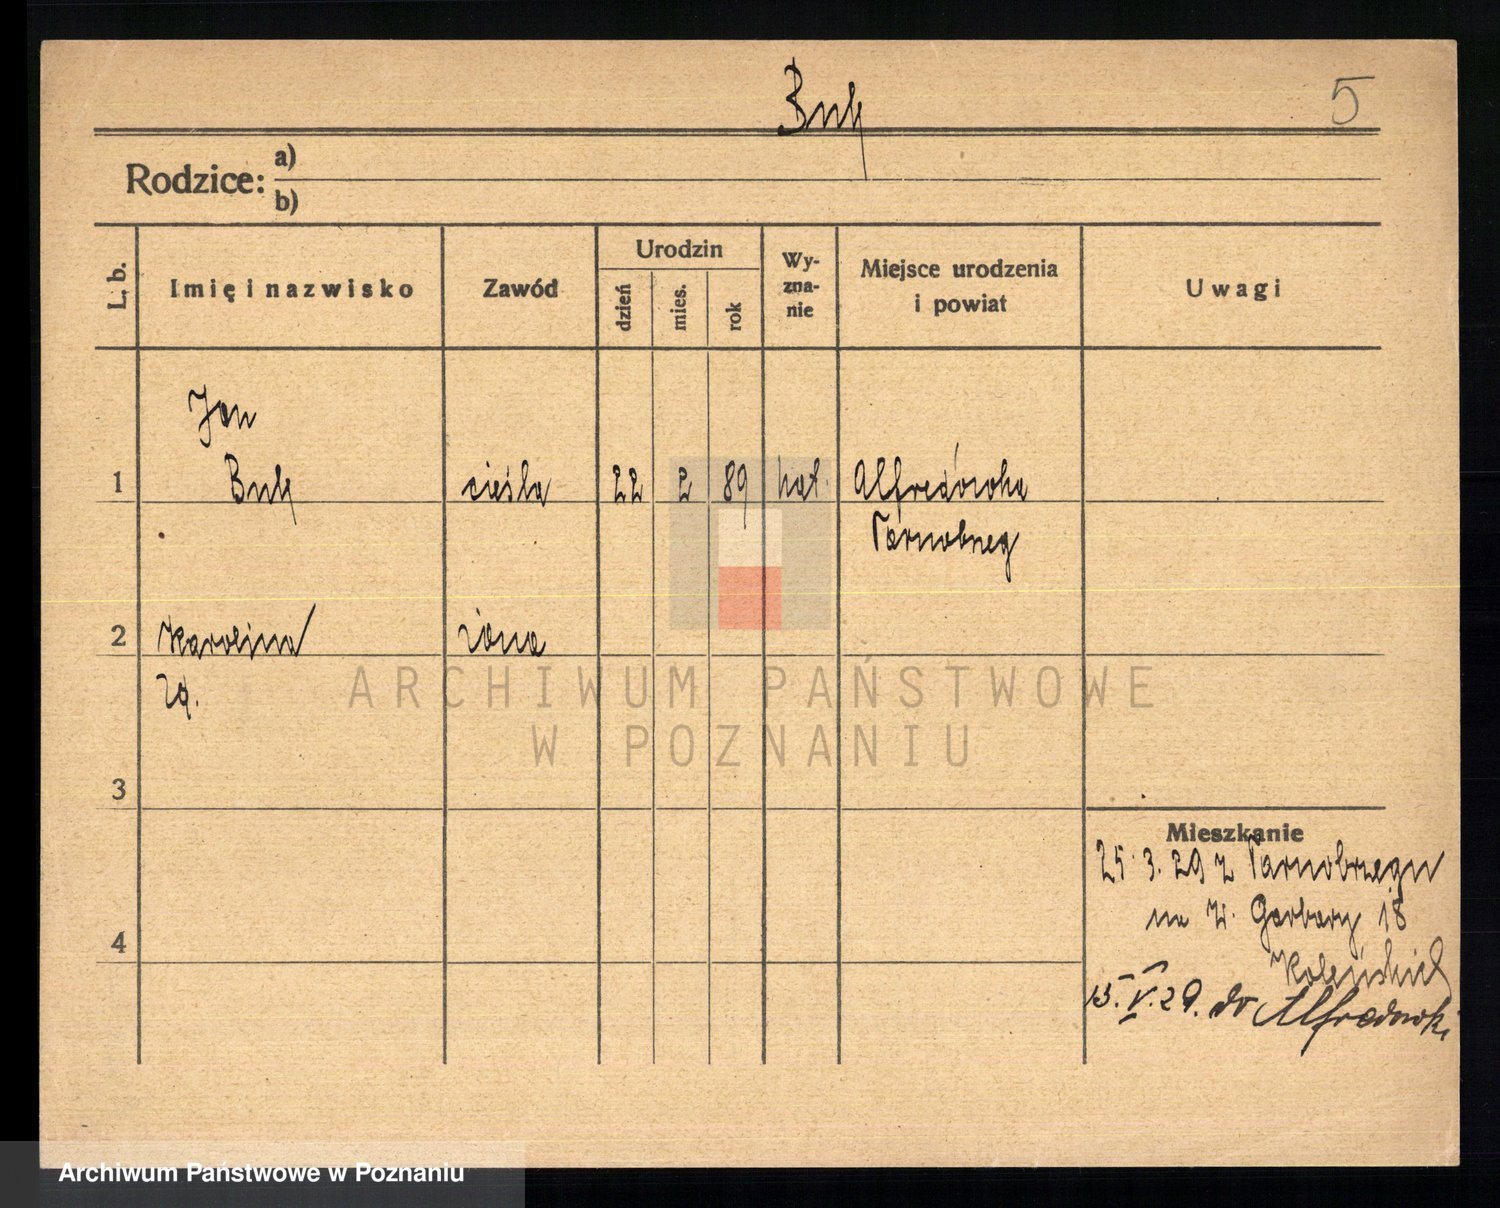 Buk
5
Rodzice:
a)
b)
L. b.
Imię i nazwisko
Zawód
Urodzin
dzień
mies.
rok
Wy-
zna-
nie
Miejsce urodzenia
i powiat
Uwagi
Jan
1 Buk cieśla 22 2 89 kat. Alfredówka
Tarnobrzeg
2 Karolina żona
3
4
Mieszkanie
25. 3. 29 z Tarnobrzegu
na W. Garbary 18
13. V. 29. do Alfredówki
ARCHIWUM PAŃSTWOWE
W POZNANIU
Archiwum Państwowe w Poznaniu